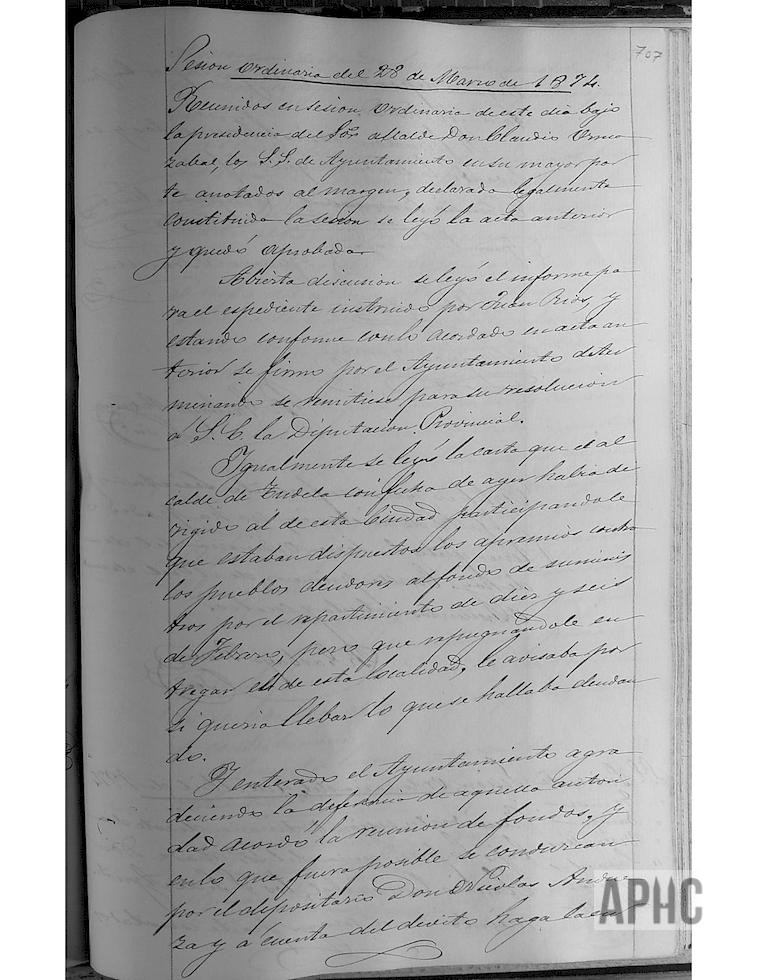 707
Sesion Ordinaria del 28 de Marzo de 1874.
Reunidos en sesion Ordinaria de este dia bajo
la presidencia del Sor alcalde Don Claudio Orma
zabal, los S.S. de Ayuntamiento en su mayor par
te anotados al margen, declarada legalmente
constituida la sesion se leyó la acta anterior
y quedó aprobada
Abierta discusion se leyó el informe pa
ra el espediente instruido por Juan Rios, y
estando conforme con lo acordado en acta an
terior se firmó por el Ayuntamiento deter
minando se remitiese para su resolucion
á S. E. la Diputacion Provincial.
Igualmente se leyó la carta que el al
calde de Tudela con fecha de ayer habia di
rigido al de esta Ciudad participandole
que estaban dispuestos los apremios contra
los pueblos deudores al fondo de suminis
tros por el repartimiento de diez y seis
de Febrero, pero que repugnandole en
tregar el de esta localidad, le avisaba por
si queria llebar lo que se hallaba deudan
do.
Y enterado el Ayuntamiento agra
deciendo la deferencia de aquella autori
dad acordó la reunion de fondos, y
en lo que fuera posible se conduzcan
por el depositario Don Nicolas
za y á cuenta del devito haga la en
APHC